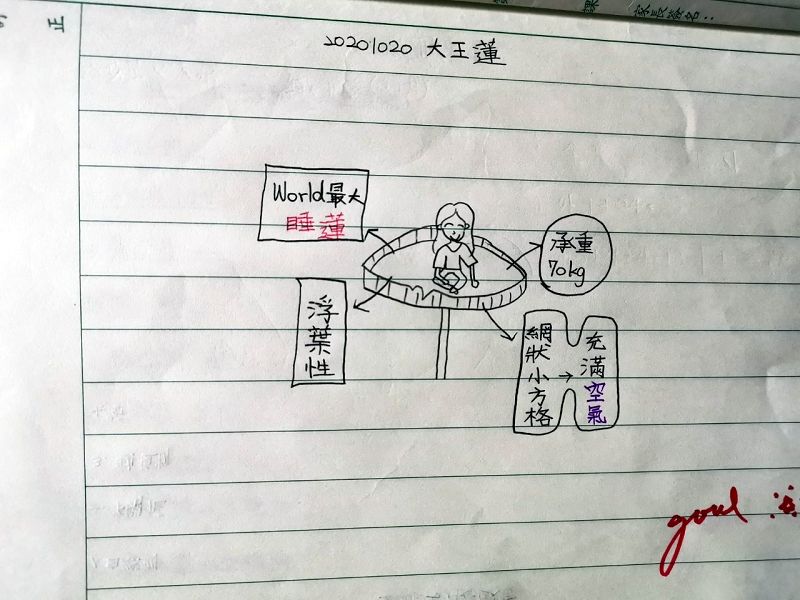 家長簽名：
正
20201020 大王蓮
World最大
睡蓮
承重
70kg
浮葉性
網狀小方格
→
充滿空氣
good